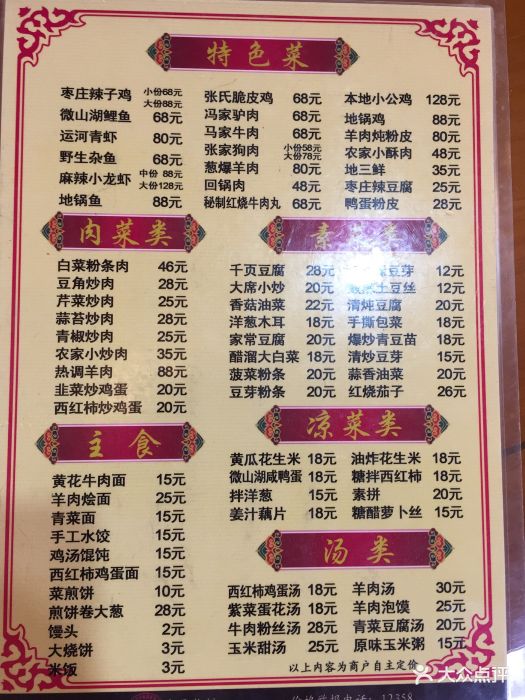 特色菜
枣庄辣子鸡 小份68元 大份88元
微山湖鲤鱼 68元
运河青虾 80元
野生杂鱼 68元
麻辣小龙虾 中份 88元 大份128元
地锅鱼 88元
张氏脆皮鸡 68元
冯家驴肉 68元
马家牛肉 68元
张家狗肉 小份58元 大份78元
葱爆羊肉 80元
回锅肉 48元
秘制红烧牛肉丸 68元
本地小公鸡 128元
地锅鸡 88元
羊肉炖粉皮 80元
农家小酥肉 48元
地三鲜 35元
枣庄辣豆腐 25元
鸭蛋粉皮 28元
肉菜类
白菜粉条肉 46元
豆角炒肉 28元
芹菜炒肉 25元
蒜苔炒肉 28元
青椒炒肉 25元
农家小炒肉 35元
热调羊肉 88元
韭菜炒鸡蛋 20元
西红柿炒鸡蛋 20元
素 类
千页豆腐 28元
大席小炒 20元
香菇油菜 22元
洋葱木耳 18元
家常豆腐 20元
醋溜大白菜 18元
菠菜粉条 20元
豆芽粉条 20元
豆芽 12元
土豆丝 12元
清炖豆腐 20元
手撕包菜 18元
爆炒青豆苗 18元
清炒豆芽 15元
蒜香油菜 20元
红烧茄子 26元
主食
黄花牛肉面 15元
羊肉烩面 25元
青菜面 15元
手工水饺 15元
鸡汤馄饨 15元
西红柿鸡蛋面 15元
菜煎饼 10元
煎饼卷大葱 28元
馒头 2元
大烧饼 3元
米饭 3元
凉菜类
黄瓜花生米 18元
微山湖咸鸭蛋 18元
拌洋葱 15元
姜汁藕片 18元
油炸花生米 18元
糖拌西红柿 18元
素拼 20元
糖醋萝卜丝 15元
汤类
西红柿鸡蛋汤 18元
紫菜蛋花汤 18元
牛肉粉丝汤 28元
玉米甜汤 25元
羊肉汤 30元
羊肉泡馍 25元
青菜豆腐汤 20元
原味玉米粥 15元
以上内容为商户自主定价
价格举报电话：12358
大众点评